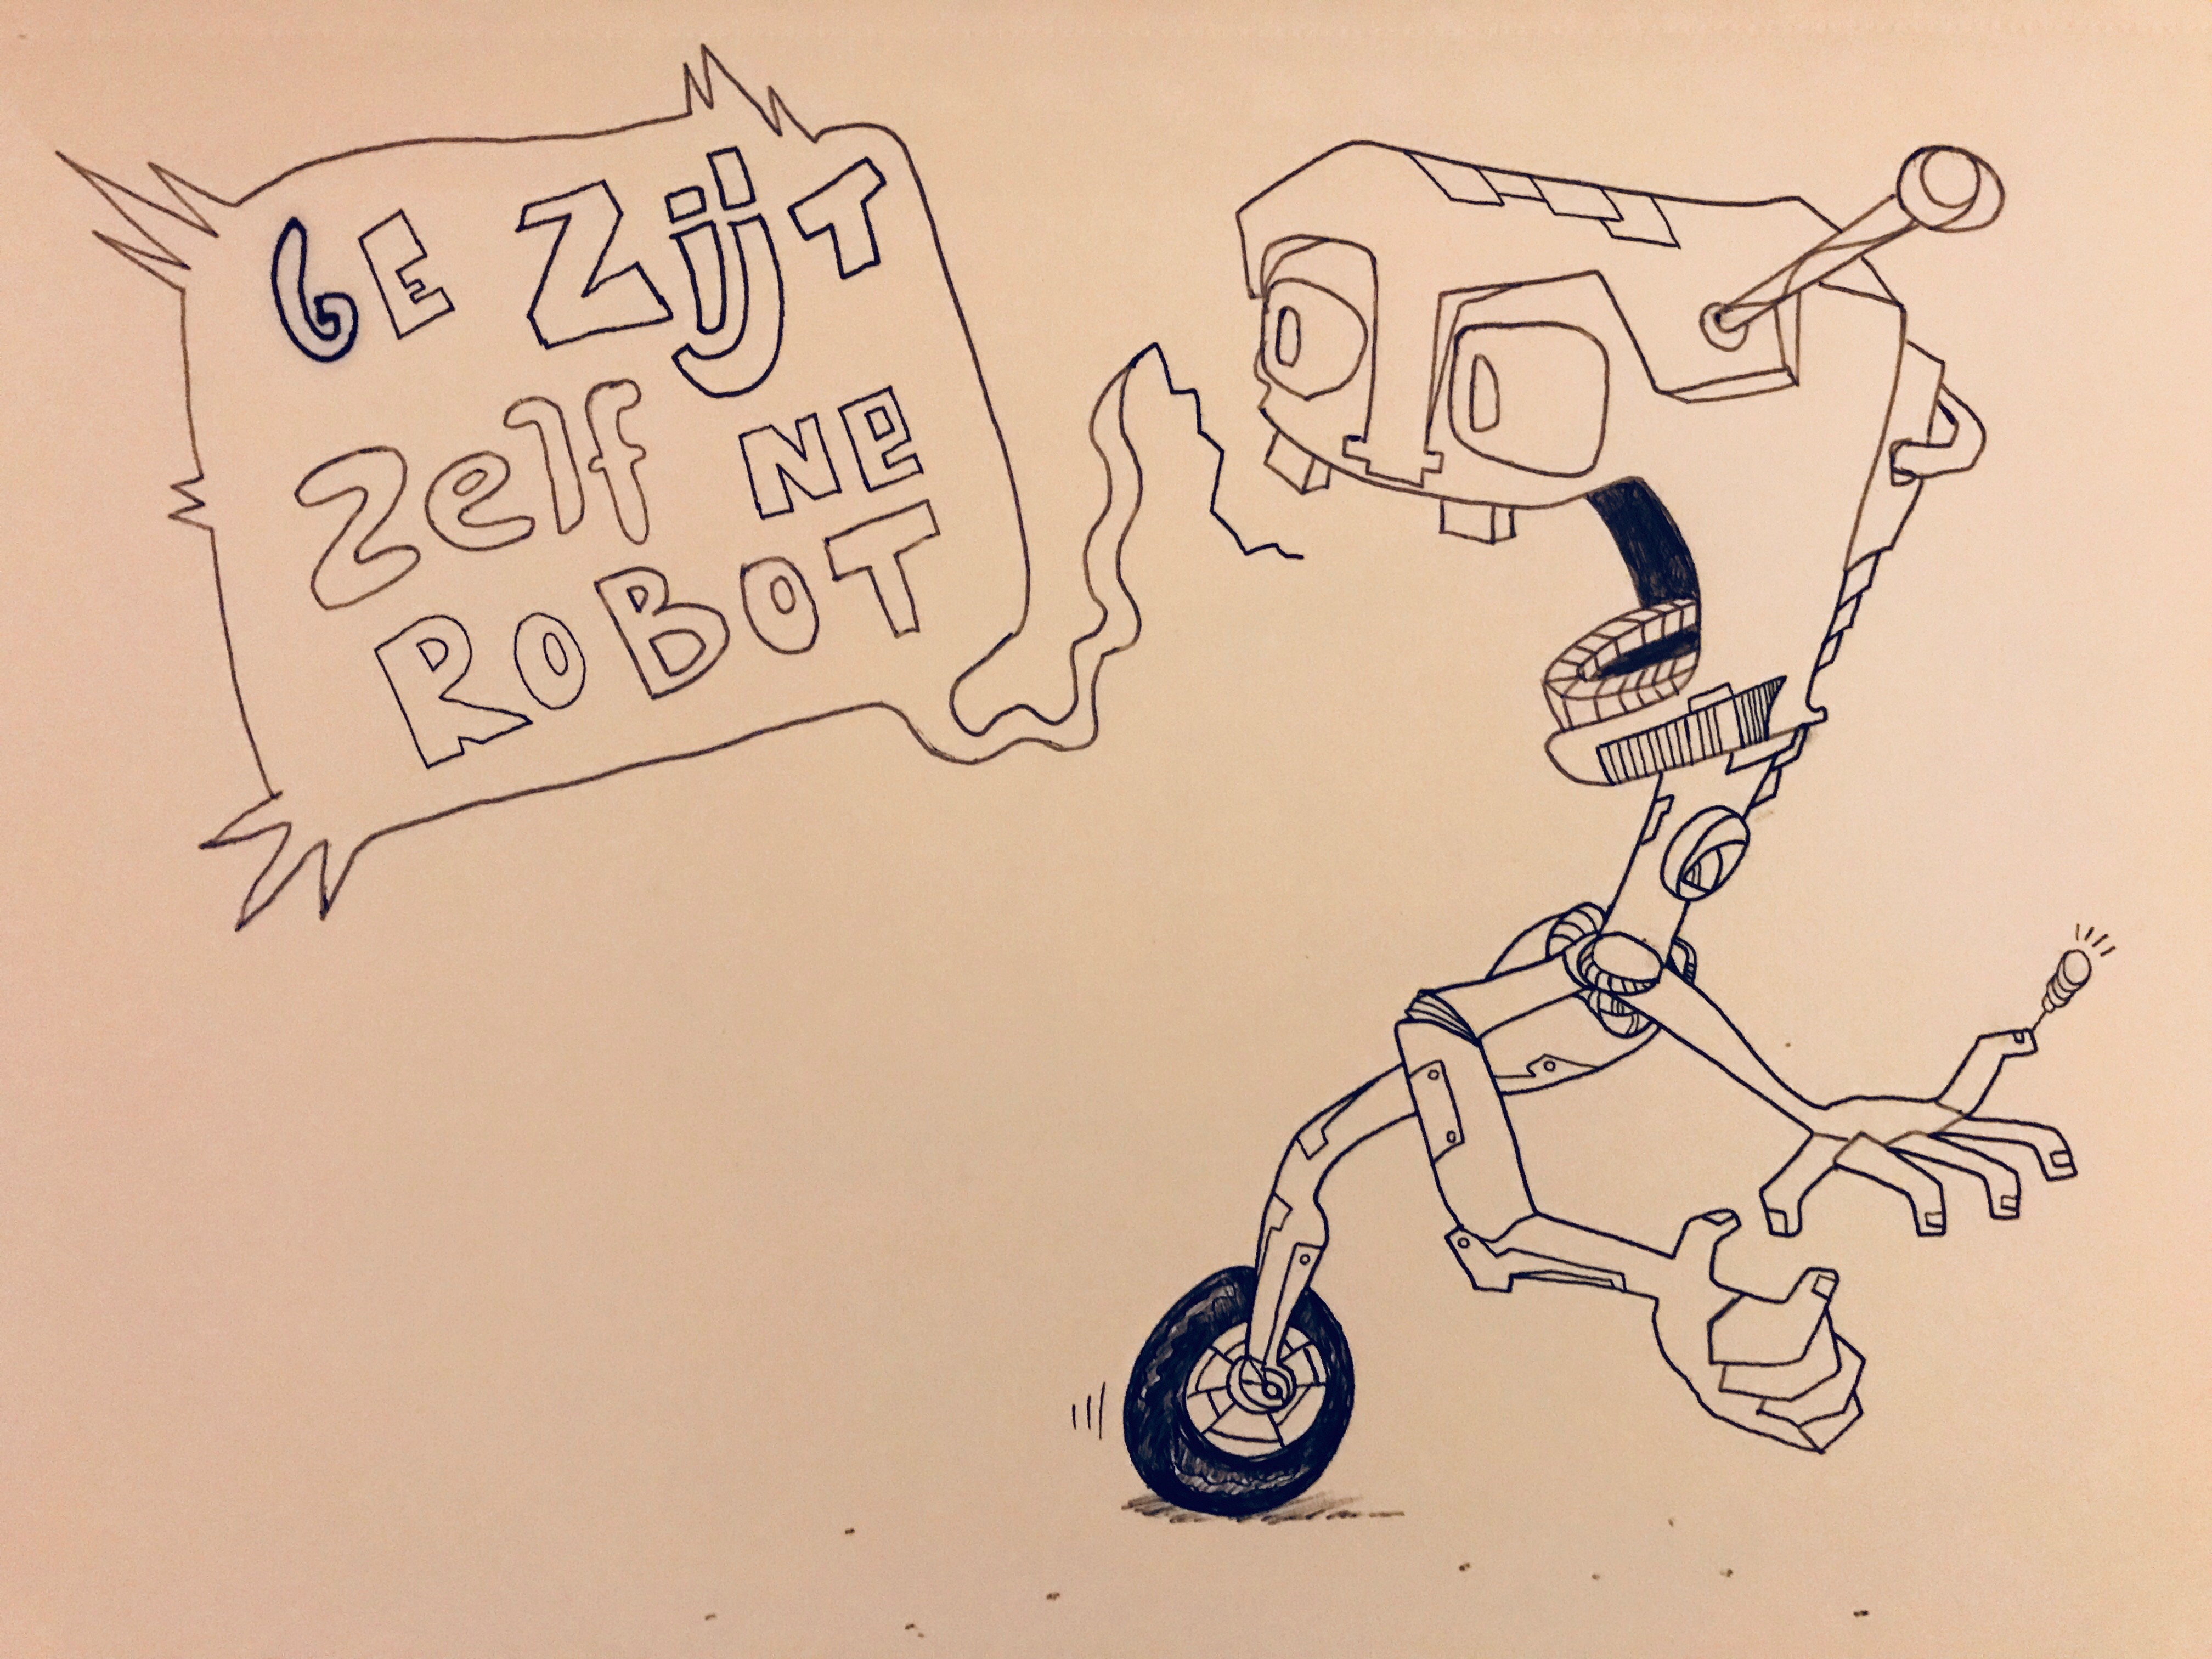 GE ZijT
Zelf NE
ROBOT